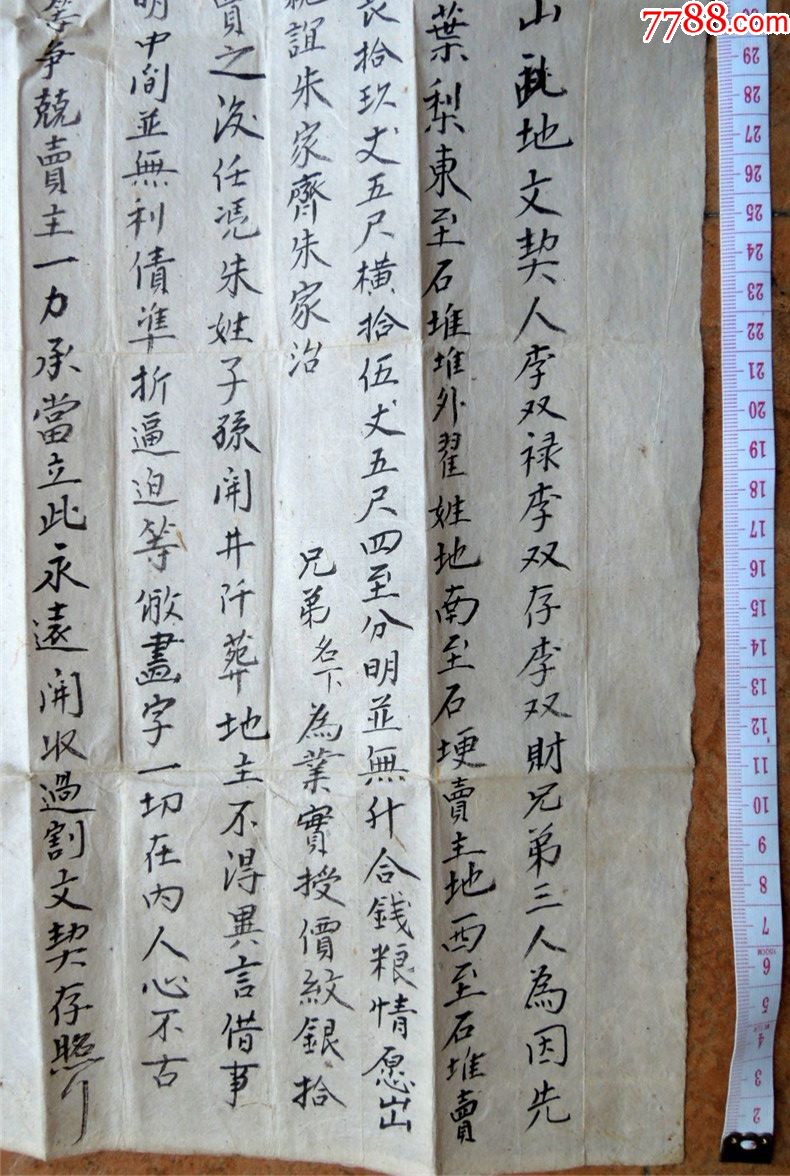 7788.com
山 地文契人李双禄李双存李双財兄弟三人為因先
葉梨東至石堆堆外翟姓地南至石埂賣主地西至石堆賣
長拾玖丈五尺橫拾伍丈五尺四至分明並無升合錢粮情愿出
誼朱家齊朱家治 兄弟名下為業實授價紋銀拾
賣之後任凭朱姓子孫開井阡葬地主不得異言借事
明中間並無利債準折逼迫等 畫字一切在內人心不古
等爭競賣主一力承當立此永遠開收過割文契存照
29
28
27
26
25
24
23
22
21
20
19
18
17
16
15
14
13
12
11
10
9
8
7
6
5
4
3
2